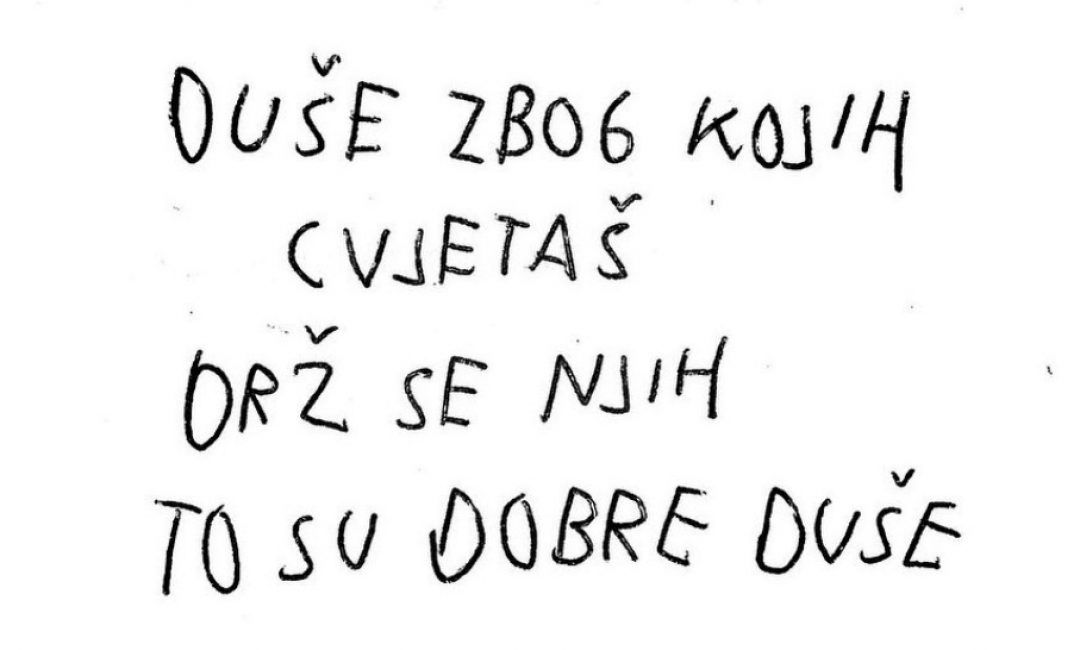 DUŠE ZBOG KOJIH
CVJETAŠ
DRŽ SE NJIH
TO SU DOBRE DUŠE